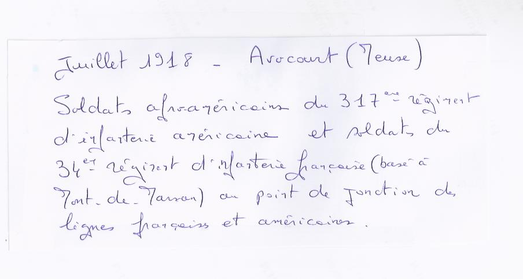 Juillet 1918 - Avocourt (Meuse)
Soldats afroaméricains du 317eme régiment
d'infanterie américaine et soldats du
34eme régiment d'infanterie française (basé à
Mont-de-Marsan) au point de jonction des
lignes françaises et américaines.